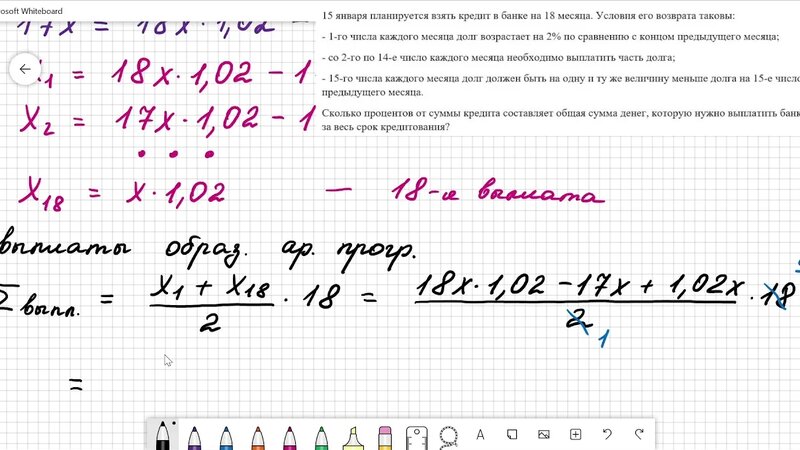 Microsoft Whiteboard
15 января планируется взять кредит в банке на 18 месяца. Условия его возврата таковы:
- 1-го числа каждого месяца долг возрастает на 2% по сравнению с концом предыдущего месяца;
- со 2-го по 14-е число каждого месяца необходимо выплатить часть долга;
- 15-го числа каждого месяца долг должен быть на одну и ту же величину меньше долга на 15-е число
предыдущего месяца.
Сколько процентов от суммы кредита составляет общая сумма денег, которую нужно выплатить банку
за весь срок кредитования?
17x = 18x · 1,02 −
x₁ = 18x · 1,02 − 1
x₂ = 17x · 1,02 − 1
• • •
x₁₈ = x · 1,02 — 18-я выплата
выплаты образ. ар. прогр.
Σ выпл. = (x₁ + x₁₈)/2 · 18 = (18x · 1,02 − 17x + 1,02x)/2 · 18
1
=
A